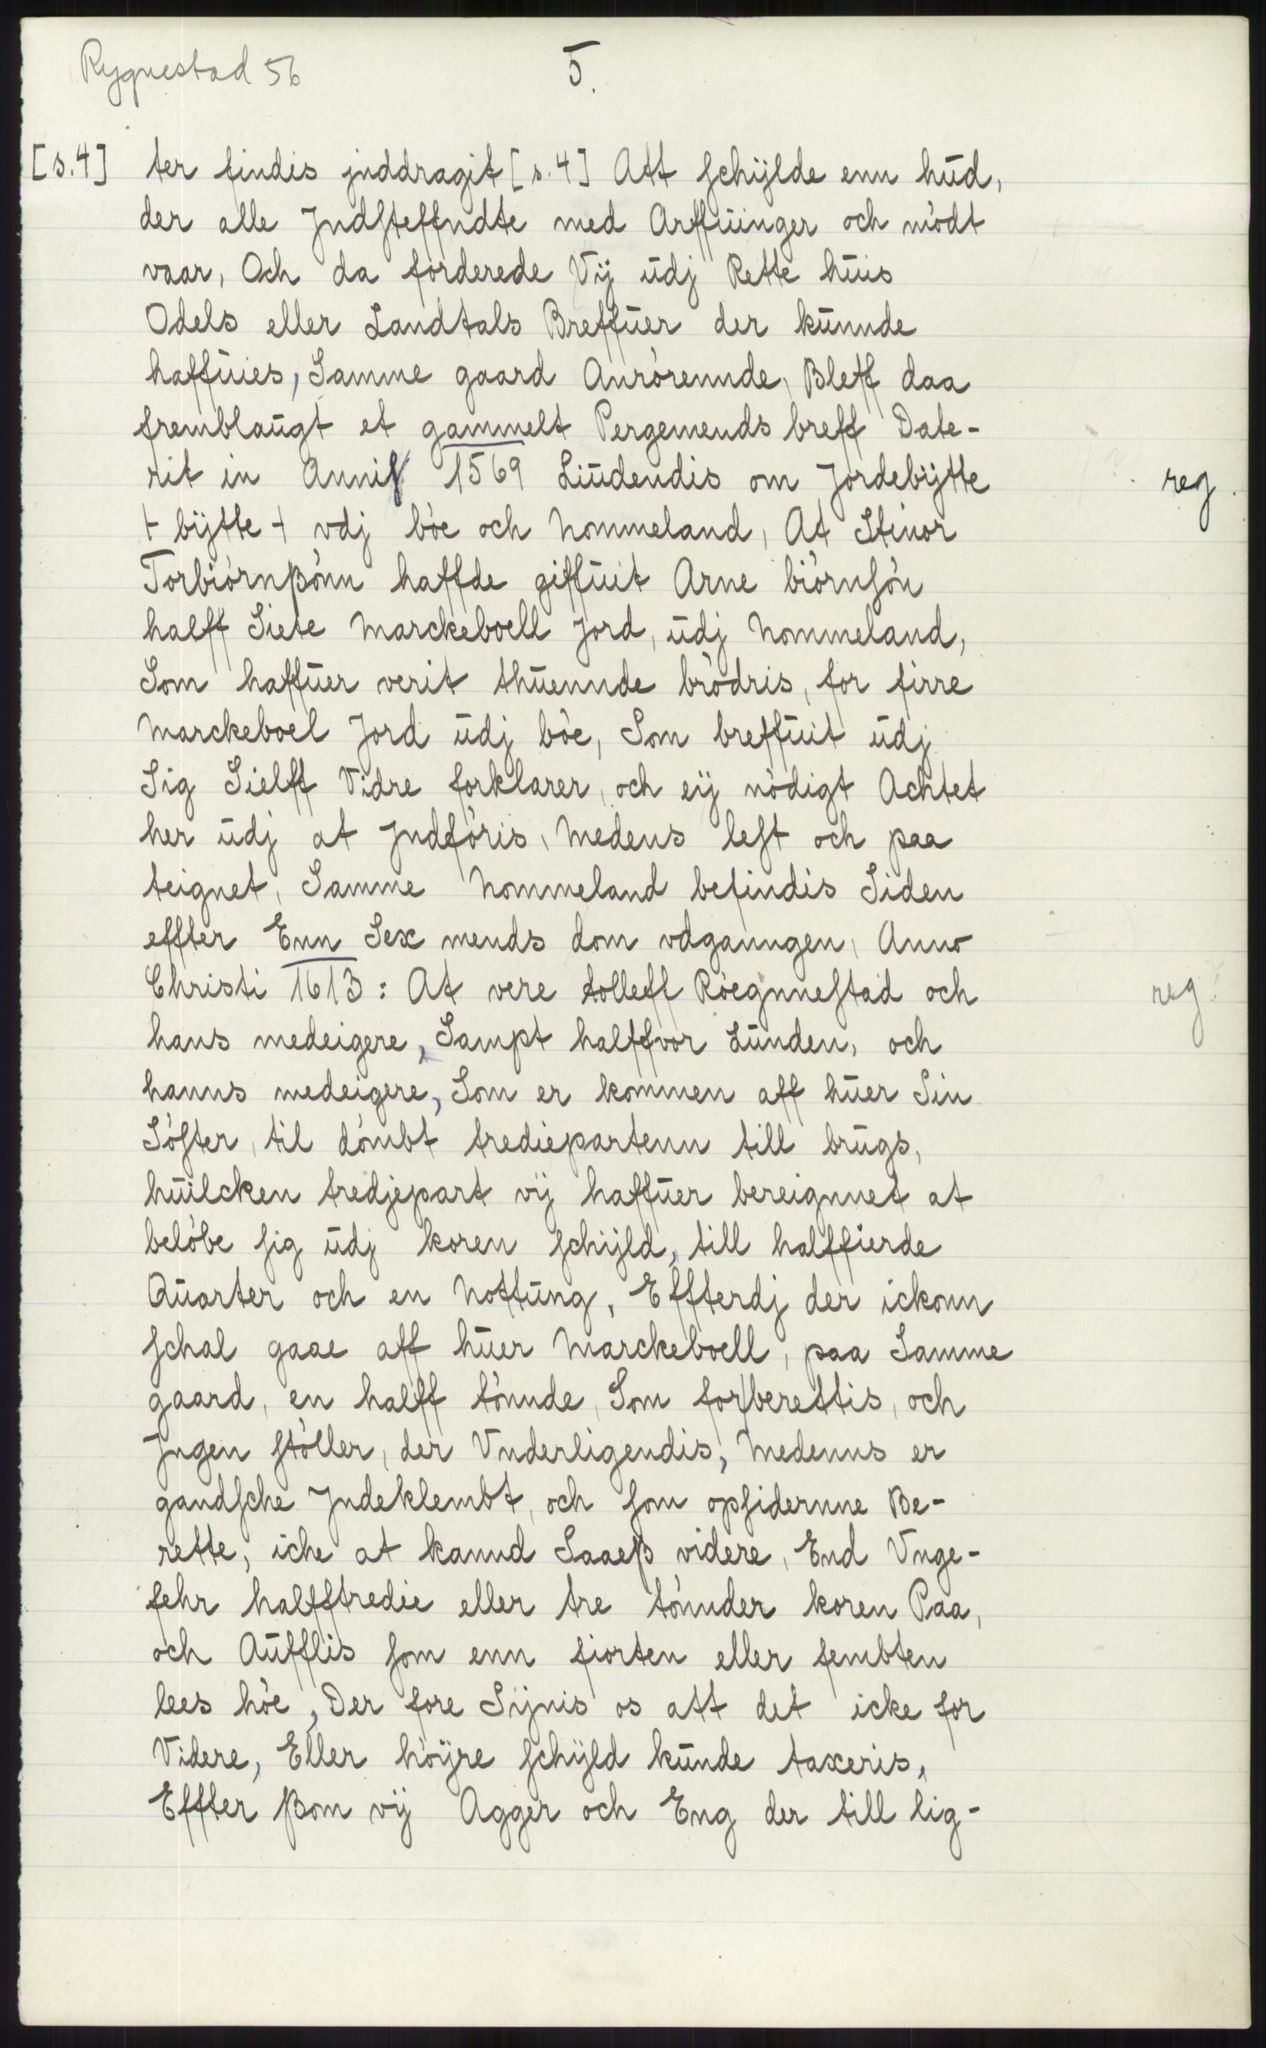 Rygnestad 56
5.
[s.4] ter findis jnddragit [s.4] Att schÿlde enn hud,
der alle Jndsteffndte med Arffuinger och mòdt
vaar, Och da forderede Vÿ udj Rette huis
Odels eller Landtals Breffuer der kunnde
haffuies, Samme gaard Anròrennde, Bleff daa
fremblaugt et gammelt Pergemends breff Date-
rit in Anni 1569 Liudendis om Jordebÿtte reg.
+ bÿtte + vdj bòe och Nommeland, At Stinor
Torbiòrnßònn haffde giffuit Arne biòrnsòn
halff Siete Marckeboell Jord, udj Nommeland,
Som haffuer verit thuennde bròdris, for firre
Marckeboel Jord udj bòe, Som breffuit udj
Sig Sielff Vidre forklarer, och eÿ nòdigt Achtet
her udj at Jndfòris, Medens lest och paa
teignet, Samme Nommeland befindis Siden
effter Enn Sex mends dom vdganngen, Anno
Christi 1613: At vere tolleff Ròegnnestad och reg.
hans medeigere, Sampt halffvor Lunden, och
hanns medeigere, Som er kommen aff huer Sin
Sòster, til dòmbt trediepartenn till brugs,
huilcken tredjepart vÿ haffuer bereignnet at
belòbe sig udj koren schÿld, till halffierde
Quarter och en Nottung, Effterdj der ickonn
schal gaae aff huer Marckeboell, paa Samme
gaard, en halff tònnde, Som for/berettis, och
Jngen stòller, der Vnderligendis, Medenns er
gandsche Jndeklembt, och som opsidernne Be-
rette, iche at kannd Saaeß videre, End Vnge-
fehr halfftredie eller tre tònnder koren Paa,
och Aufflis som enn fiorten eller fembten
lees hòe, Der fore Sÿnis os att det icke for
Videre, Eller hòÿre schÿld kunde taxeris,
Effter ßom vÿ Agger och Eng der till lig-